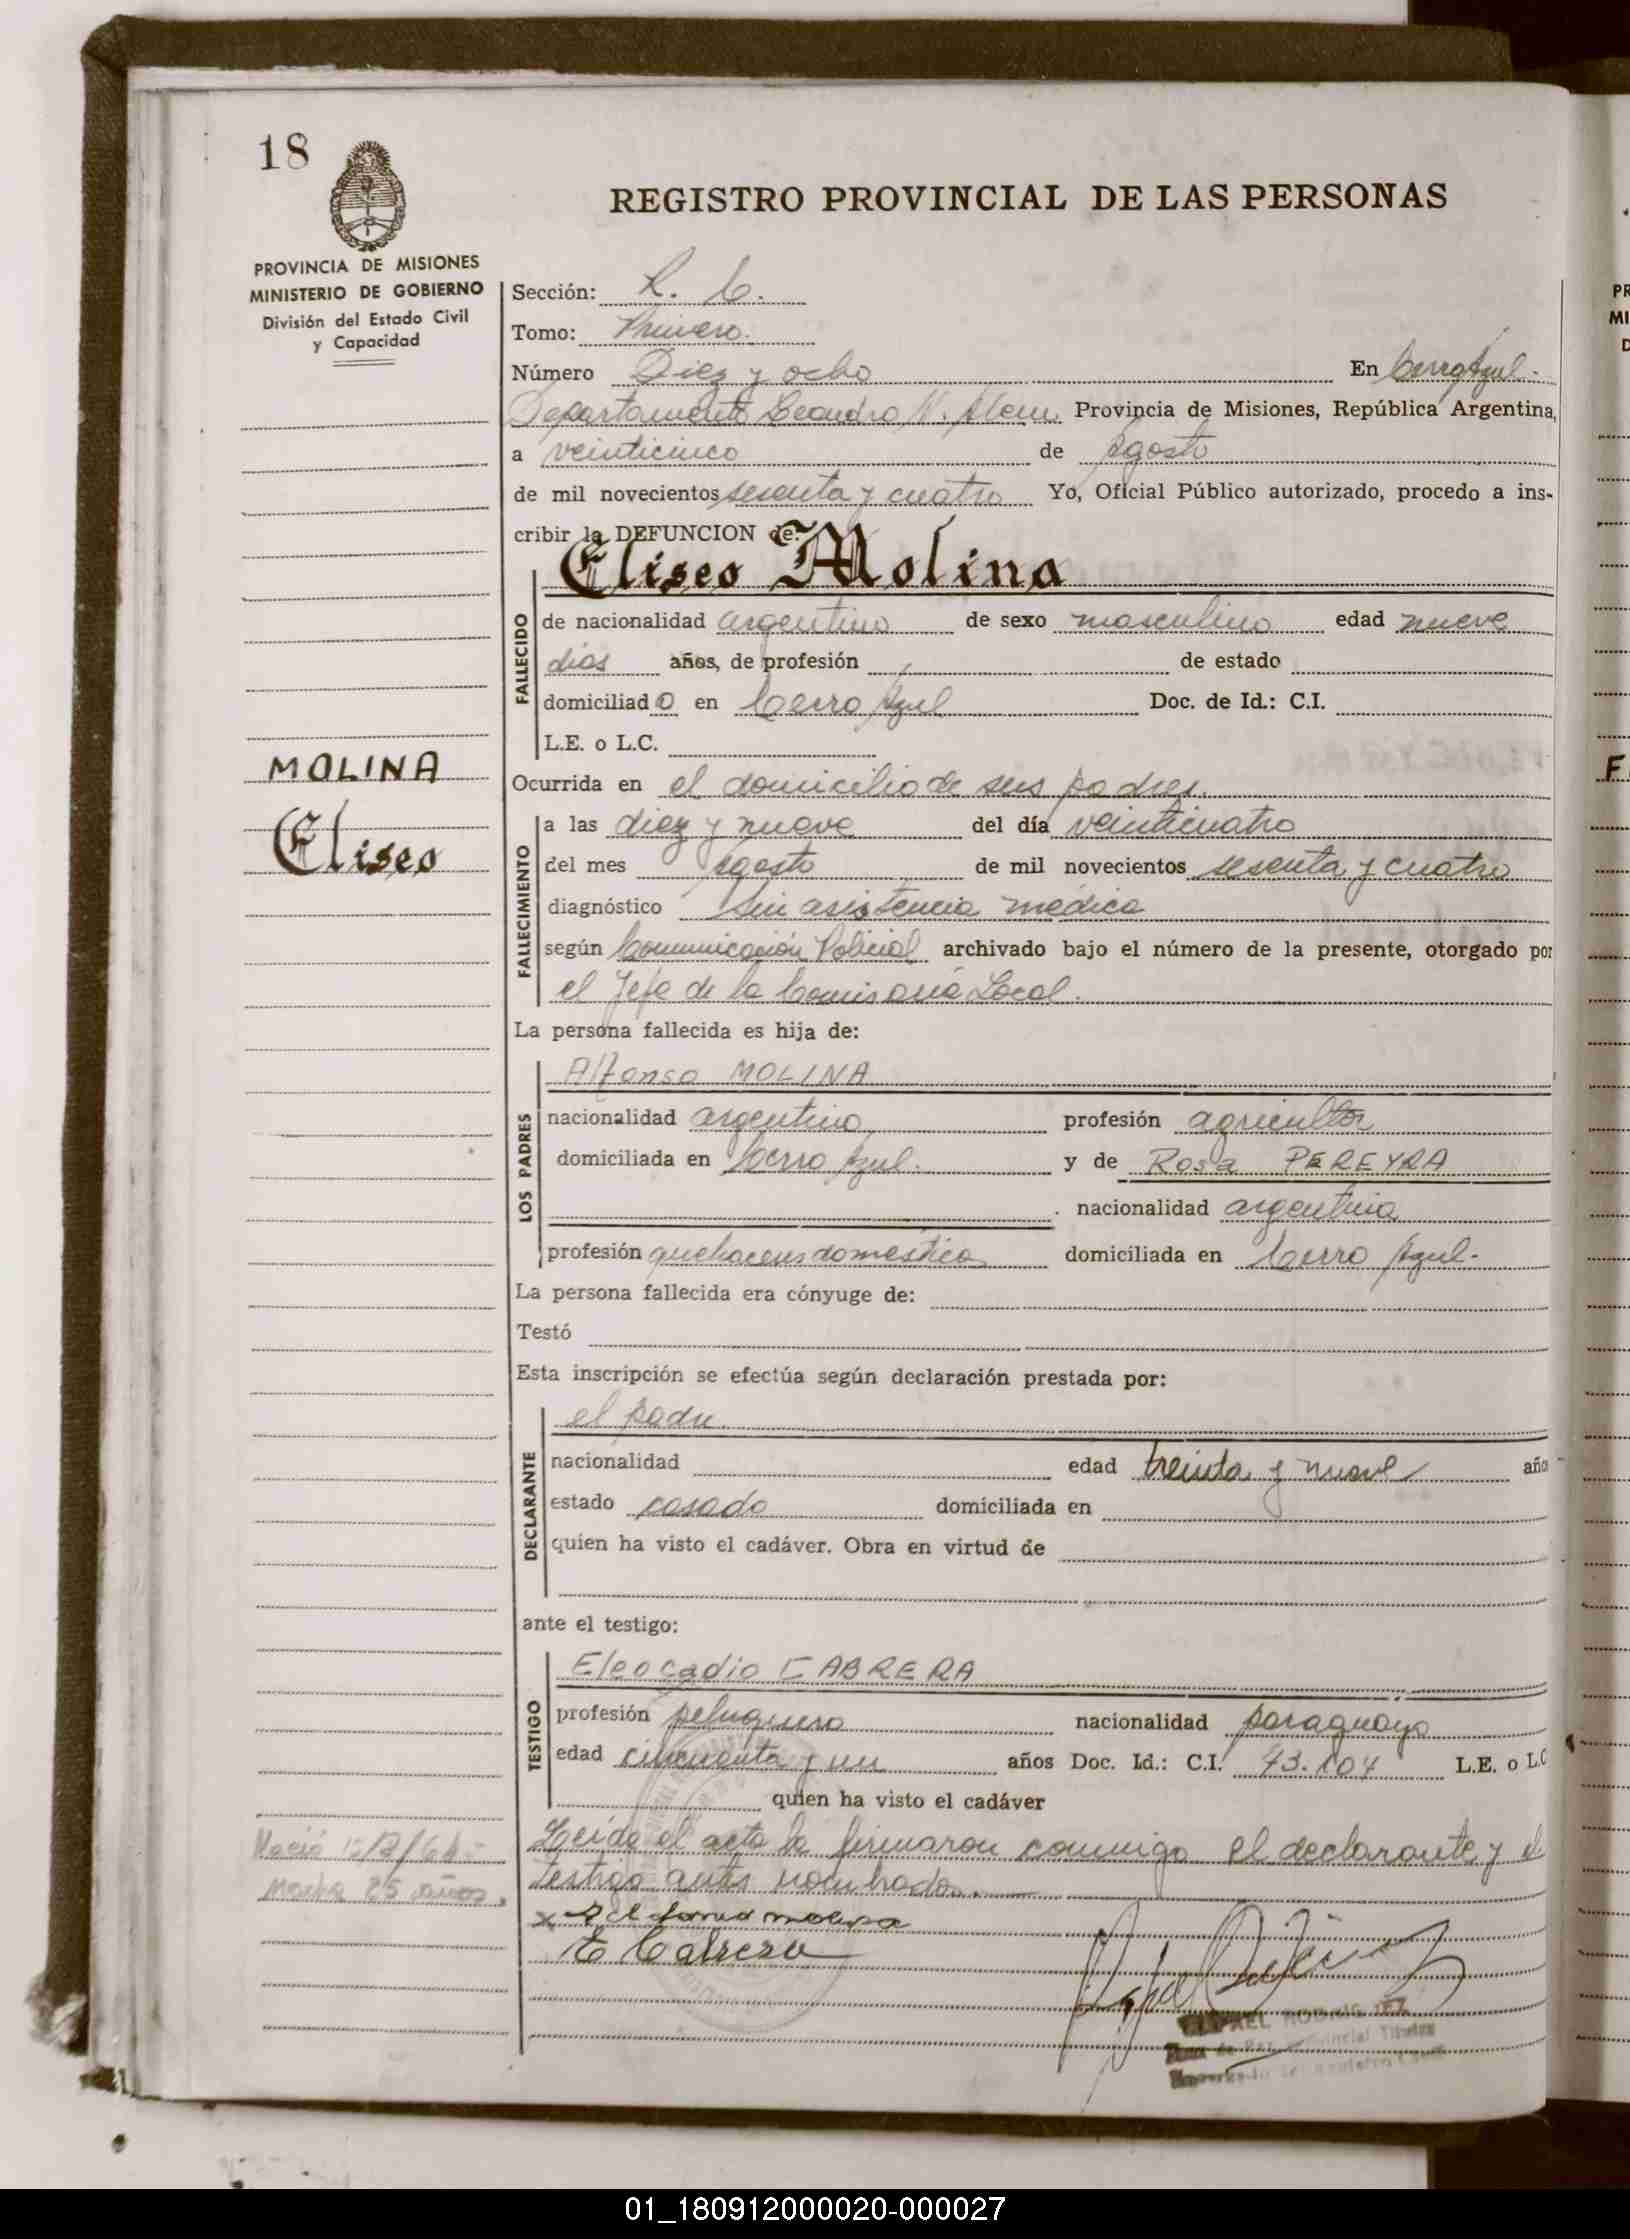 18
REGISTRO PROVINCIAL DE LAS PERSONAS
PROVINCIA DE MISIONES
MINISTERIO DE GOBIERNO
División del Estado Civil
y Capacidad
Sección: R. C.
Tomo: Primero.
Número Diez y ocho En Cerro Azul.
Departamento Leandro N. Alem Provincia de Misiones, República Argentina,
a veinticinco de Agosto
de mil novecientos sesenta y cuatro Yo, Oficial Público autorizado, procedo a ins-
cribir la DEFUNCION de:
Eliseo Molina
FALLECIDO
de nacionalidad argentino de sexo masculino edad nueve
dias años, de profesión de estado
domiciliado en Cerro Azul Doc. de Id.: C.I.
L.E. o L.C.
MOLINA
Eliseo
Ocurrida en el domicilio de sus padres.
FALLECIMIENTO
a las diez y nueve del día veinticuatro
del mes Agosto de mil novecientos sesenta y cuatro
diagnóstico Sin asistencia médica
según Comunicación Policial archivado bajo el número de la presente, otorgado por
el Jefe de la Comisaria Local.
La persona fallecida es hija de:
LOS PADRES
Alfonso MOLINA
nacionalidad argentino profesión agricultor
domiciliada en Cerro Azul. y de Rosa PEREYRA
nacionalidad argentina
profesión quehaceres domestico domiciliada en Cerro Azul.
La persona fallecida era cónyuge de:
Testó
Esta inscripción se efectúa según declaración prestada por:
DECLARANTE
el padre
nacionalidad edad treinta y nueve año
estado casado domiciliada en
quien ha visto el cadáver. Obra en virtud de
ante el testigo:
TESTIGO
Eleocadio CABRERA
profesión peluquero nacionalidad paraguayo
edad cincuenta y un años Doc. Id.: C.I. 43.104 L.E. o L.C
quien ha visto el cadáver
Leida el acta la firmaron conmigo el declarante y el
testigo antes nombrados.
Nació /64
25 años
molina
E Cabrera
RAFAEL RODRIGUEZ
Juez de Paz Provincial Titular
PR
MI
D
F
01_180912000020-000027